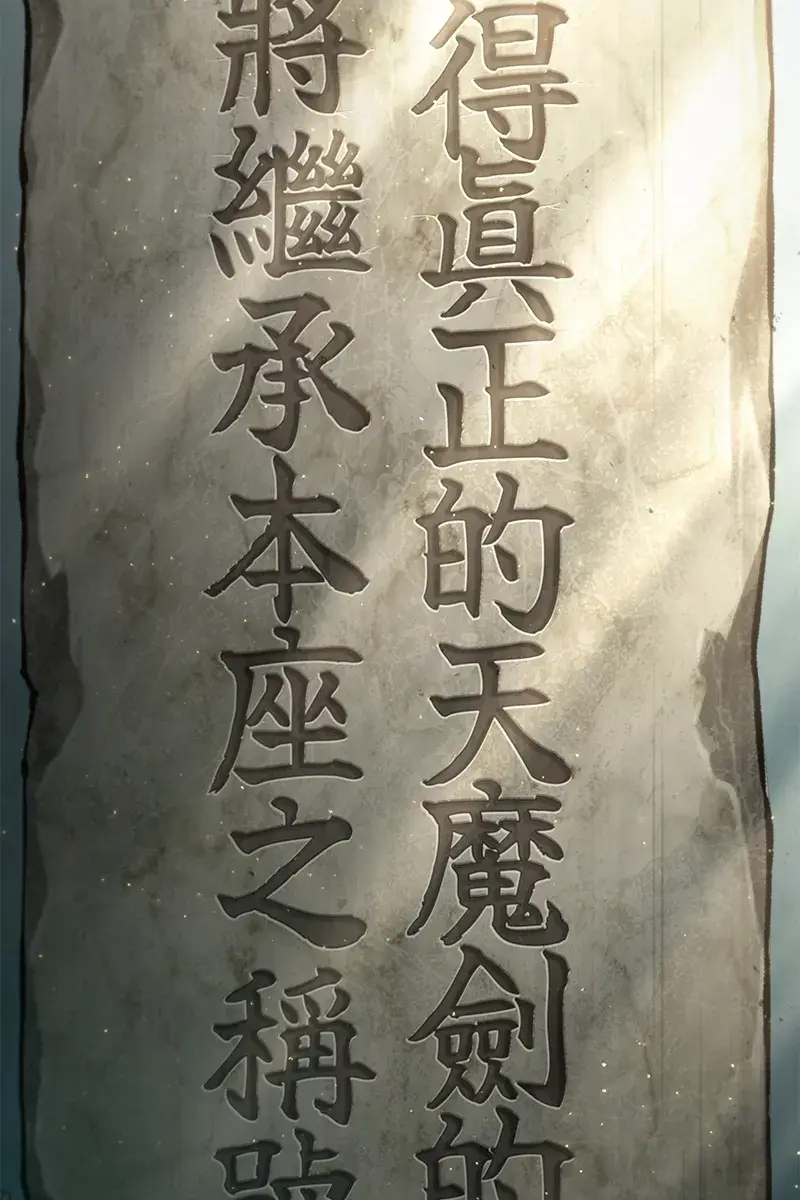 得眞正的天魔劍的
將繼承本座之稱號